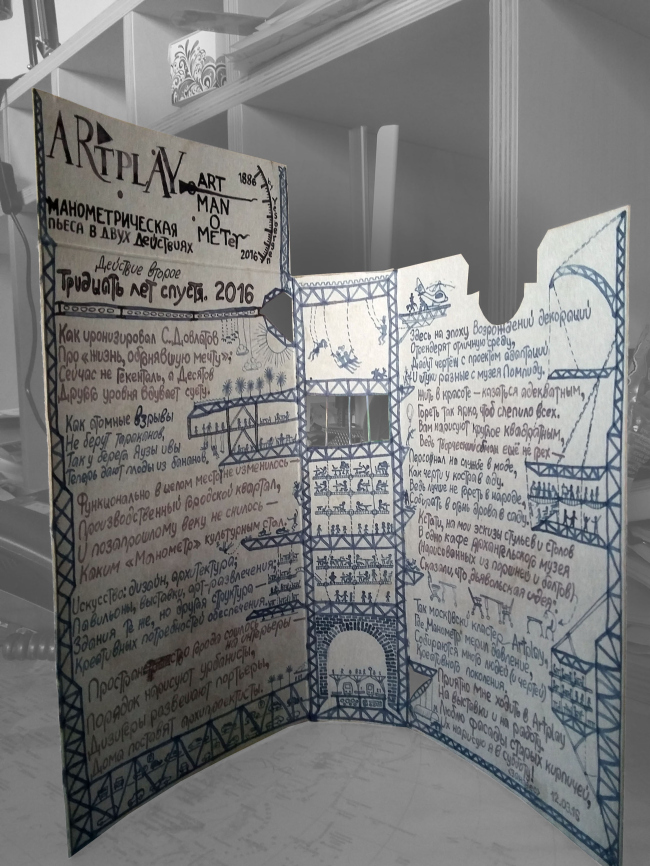 ARTPLAY
ART
MAN
O
METer
1886
2016
МАНОМЕТРИЧЕСКАЯ
ПЬЕСА В ДВУХ ДЕЙСТВИЯХ
Действие второе
Тридцать лет спустя. 2016
Как иронизировал С. Довлатов
Про «жизнь, обгонявшую мечту»;
Сейчас не Гекенталь, а Десятов
Другого уровня вдувает суету.
Как атомные взрывы
Не берут тараканов,
Так у дерева Яузы ивы
Теперь дают плоды из бананов.
Функционально в целом место не изменилось —
Производственный городской квартал,
И позапрошлому веку не снилось —
Каким «Манометр» культурным стал.
Искусство: дизайн, архитектура;
Павильоны, выставки, арт-развлечения;
Здания те же, но другая структура —
Креативных потребностей обеспечения.
города интерьеры —
Порядок нарисуют урбанисты,
Дизайнеры развешают портьеры,
Дома поставят архитектуристы.
Здесь на эпоху Возрождений декораций
Отрендерят отличную среду,
Дадут чертёж с проектом адаптации
И штуки разные с музея Помпиду.
Жить в красоте — казаться адекватным,
Гореть так ярко, чтоб слепило всех.
Вам нарисуют круглое квадратным,
Ведь творческий обман ещё не грех —
Персонал на скучне в моде,
Как черти у костра в аду,
Ведь лучше не гореть в народе,
Собирать в огонь дрова в саду.
Кстати, на мои эскизы стульев и столов
В одно кафе Архангельского музея
(Нарисованных из поршней и болтов),
Сказали, что дьявольская идея.
Так московский кластер — Artplay,
Где Манометр мерил давление,
Собираются много людей (и чертей)
Креативного поколения.
Приятно мне ходить в Artplay
На выставки и на работу.
Люблю фасады старых кирпичей,
и нарисую я в субботу!
12.03.16